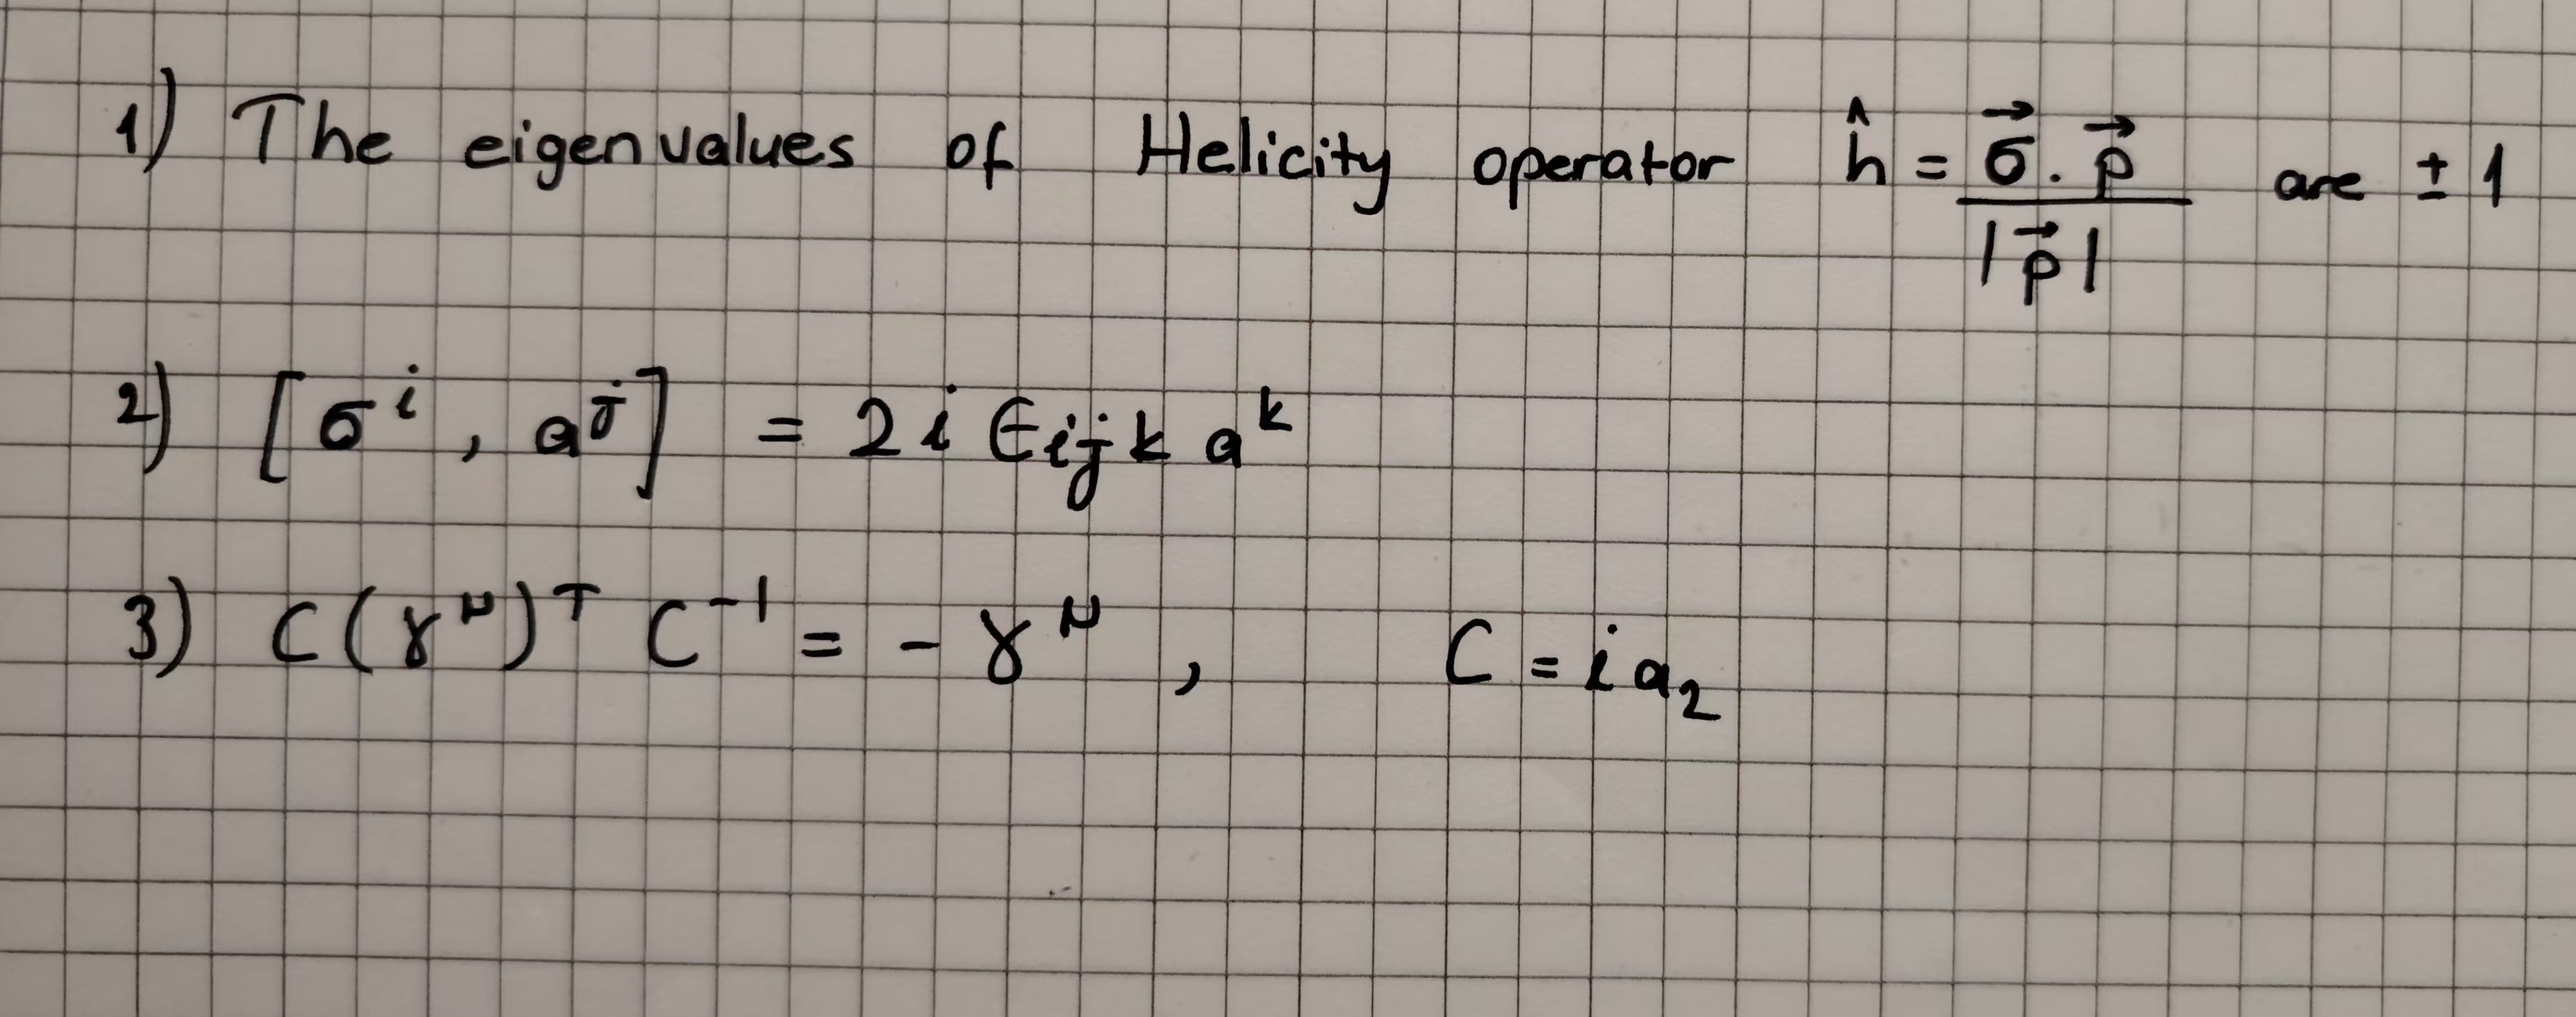 1) The eigenvalues of Helicity operator ĥ = σ⃗ . p⃗ / |p⃗| are ± 1
2) [σⁱ, aʲ] = 2 i ϵᵢⱼₖ aᵏ
3) C(γᵘ)ᵀ C⁻¹ = - γᵘ , C = i a₂